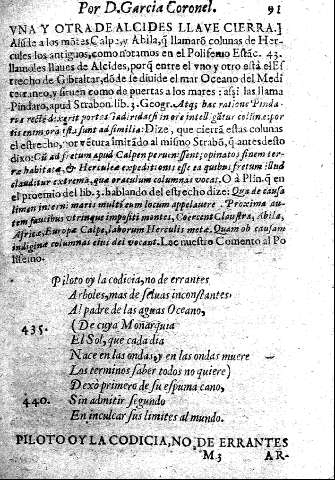 Por D. Garcia Coronel. 91
VNA Y OTRA DE ALCIDES LLAVE CIERRA.]
Assi de a los mõtes Calpe, y Abila, q̃ llamarõ colunas de Her-
cules los antiguos, como notamos en el Polifemo Estãc. 43.
llamoles llaues de Alcides, porq̃ entre el vno y otro està el Es
trecho de Gibaltar, dõde se diuide el mar Oceano del Medi
terraneo, y siruen como de puertas a los mares: assi las llama
Pindaro, apud Strabon. lib. 3. Geogr. Atq; hac ratione Pinda-
Dize, que cierrã estas colunas
el estrecho, por vētura imitãdo al mismo Strabõ, q̃ antes desto
dixo: Cũ ad fretum apud Calpen peruenissent, opinatos finem ter-
ræ habitatæ, & Herculeæ expeditionis esse ea quibus fretum illud
clauditur extrema, quæ oraculum columnas vocat. O a Plin. q̃ en
el proemio del lib. 3. hablando del estrecho dize: Qua de causa
limen interni maris multi eum locum appellauere. Proximis au-
tem faucibus vtrinque impositi montes, coercent claustra, Abila,
Africæ, Europæ Calpe, laborum Herculis metæ. Quam ob causam
indigenæ columnas eius dei vocant. Lee nuestro Comento al Po
lifemo.
Piloto oy la codicia, no de errantes
Arboles, mas de seluas inconstantes,
Al padre de las aguas Oceano,
435. (De cuya Monarquia
El Sol, que cada dia
Nace en las ondas, y en las ondas muere
Los terminos saber todos no quiere)
Dexò primero de su espuma cano,
440. Sin admitir segundo
En inculcar sus limites al mundo.
PILOTO OY LA CODICIA, NO DE ERRANTES
M 3 AR-